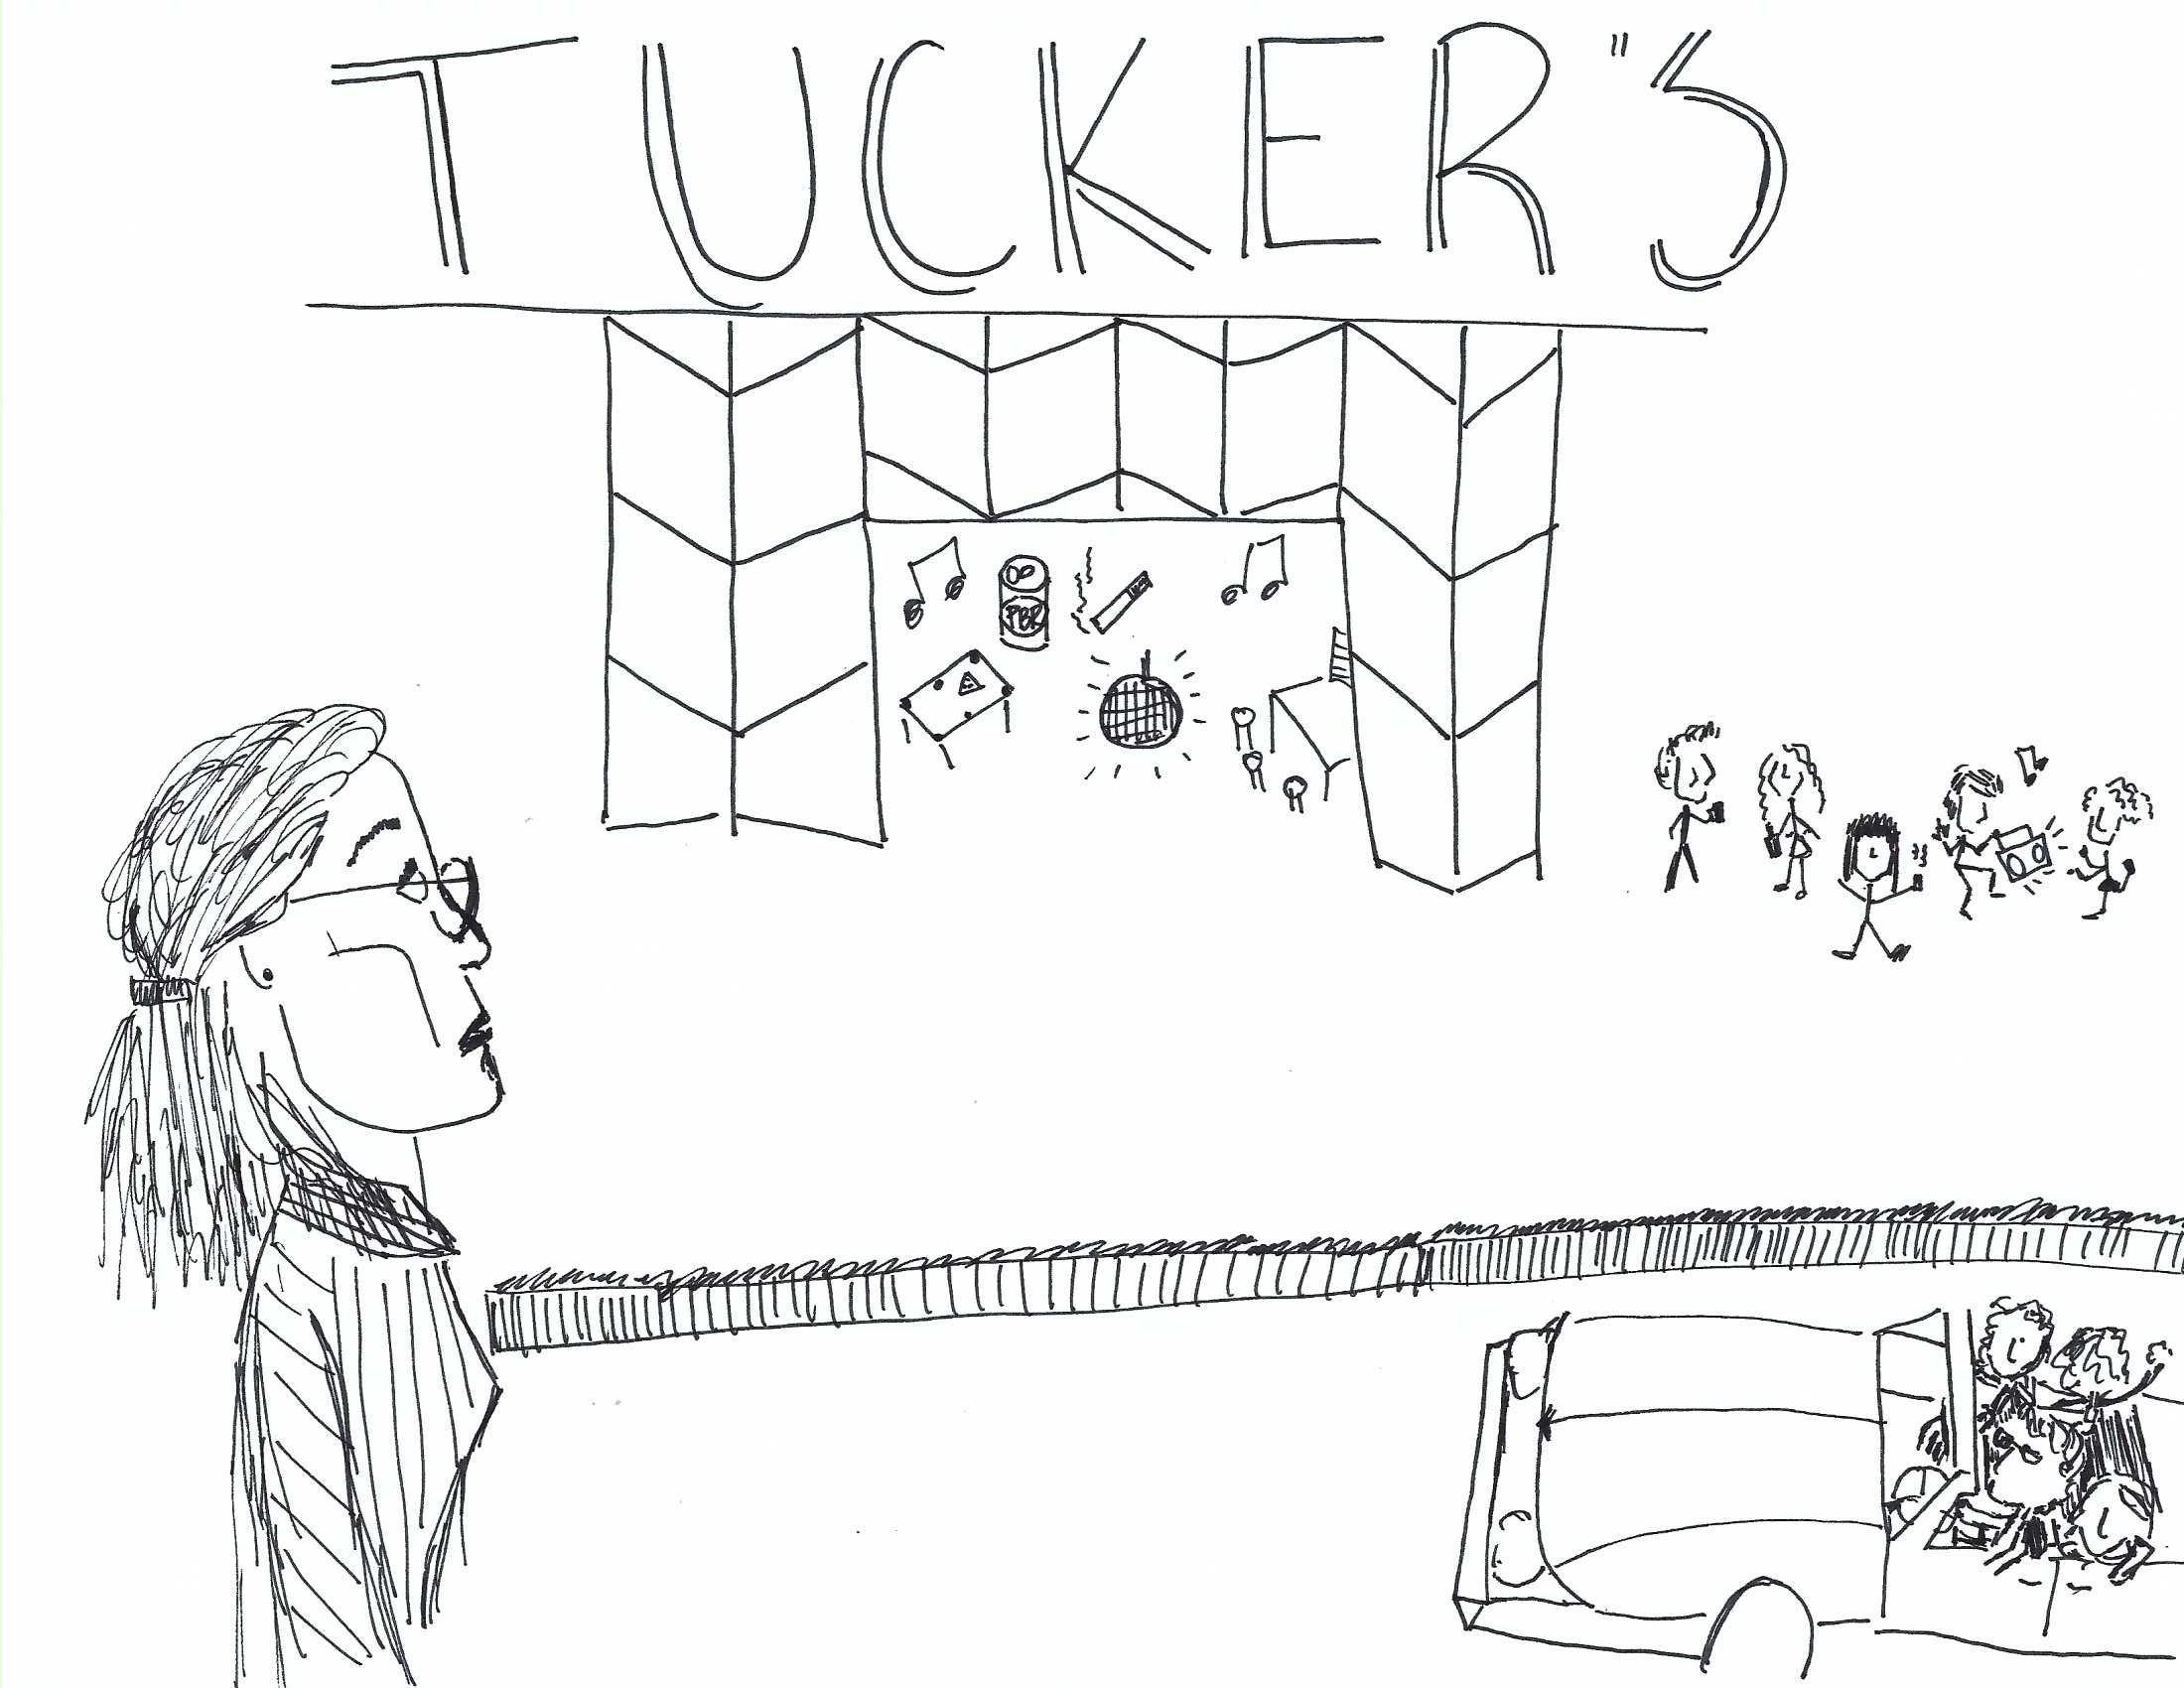 TUCKER"S
PBR